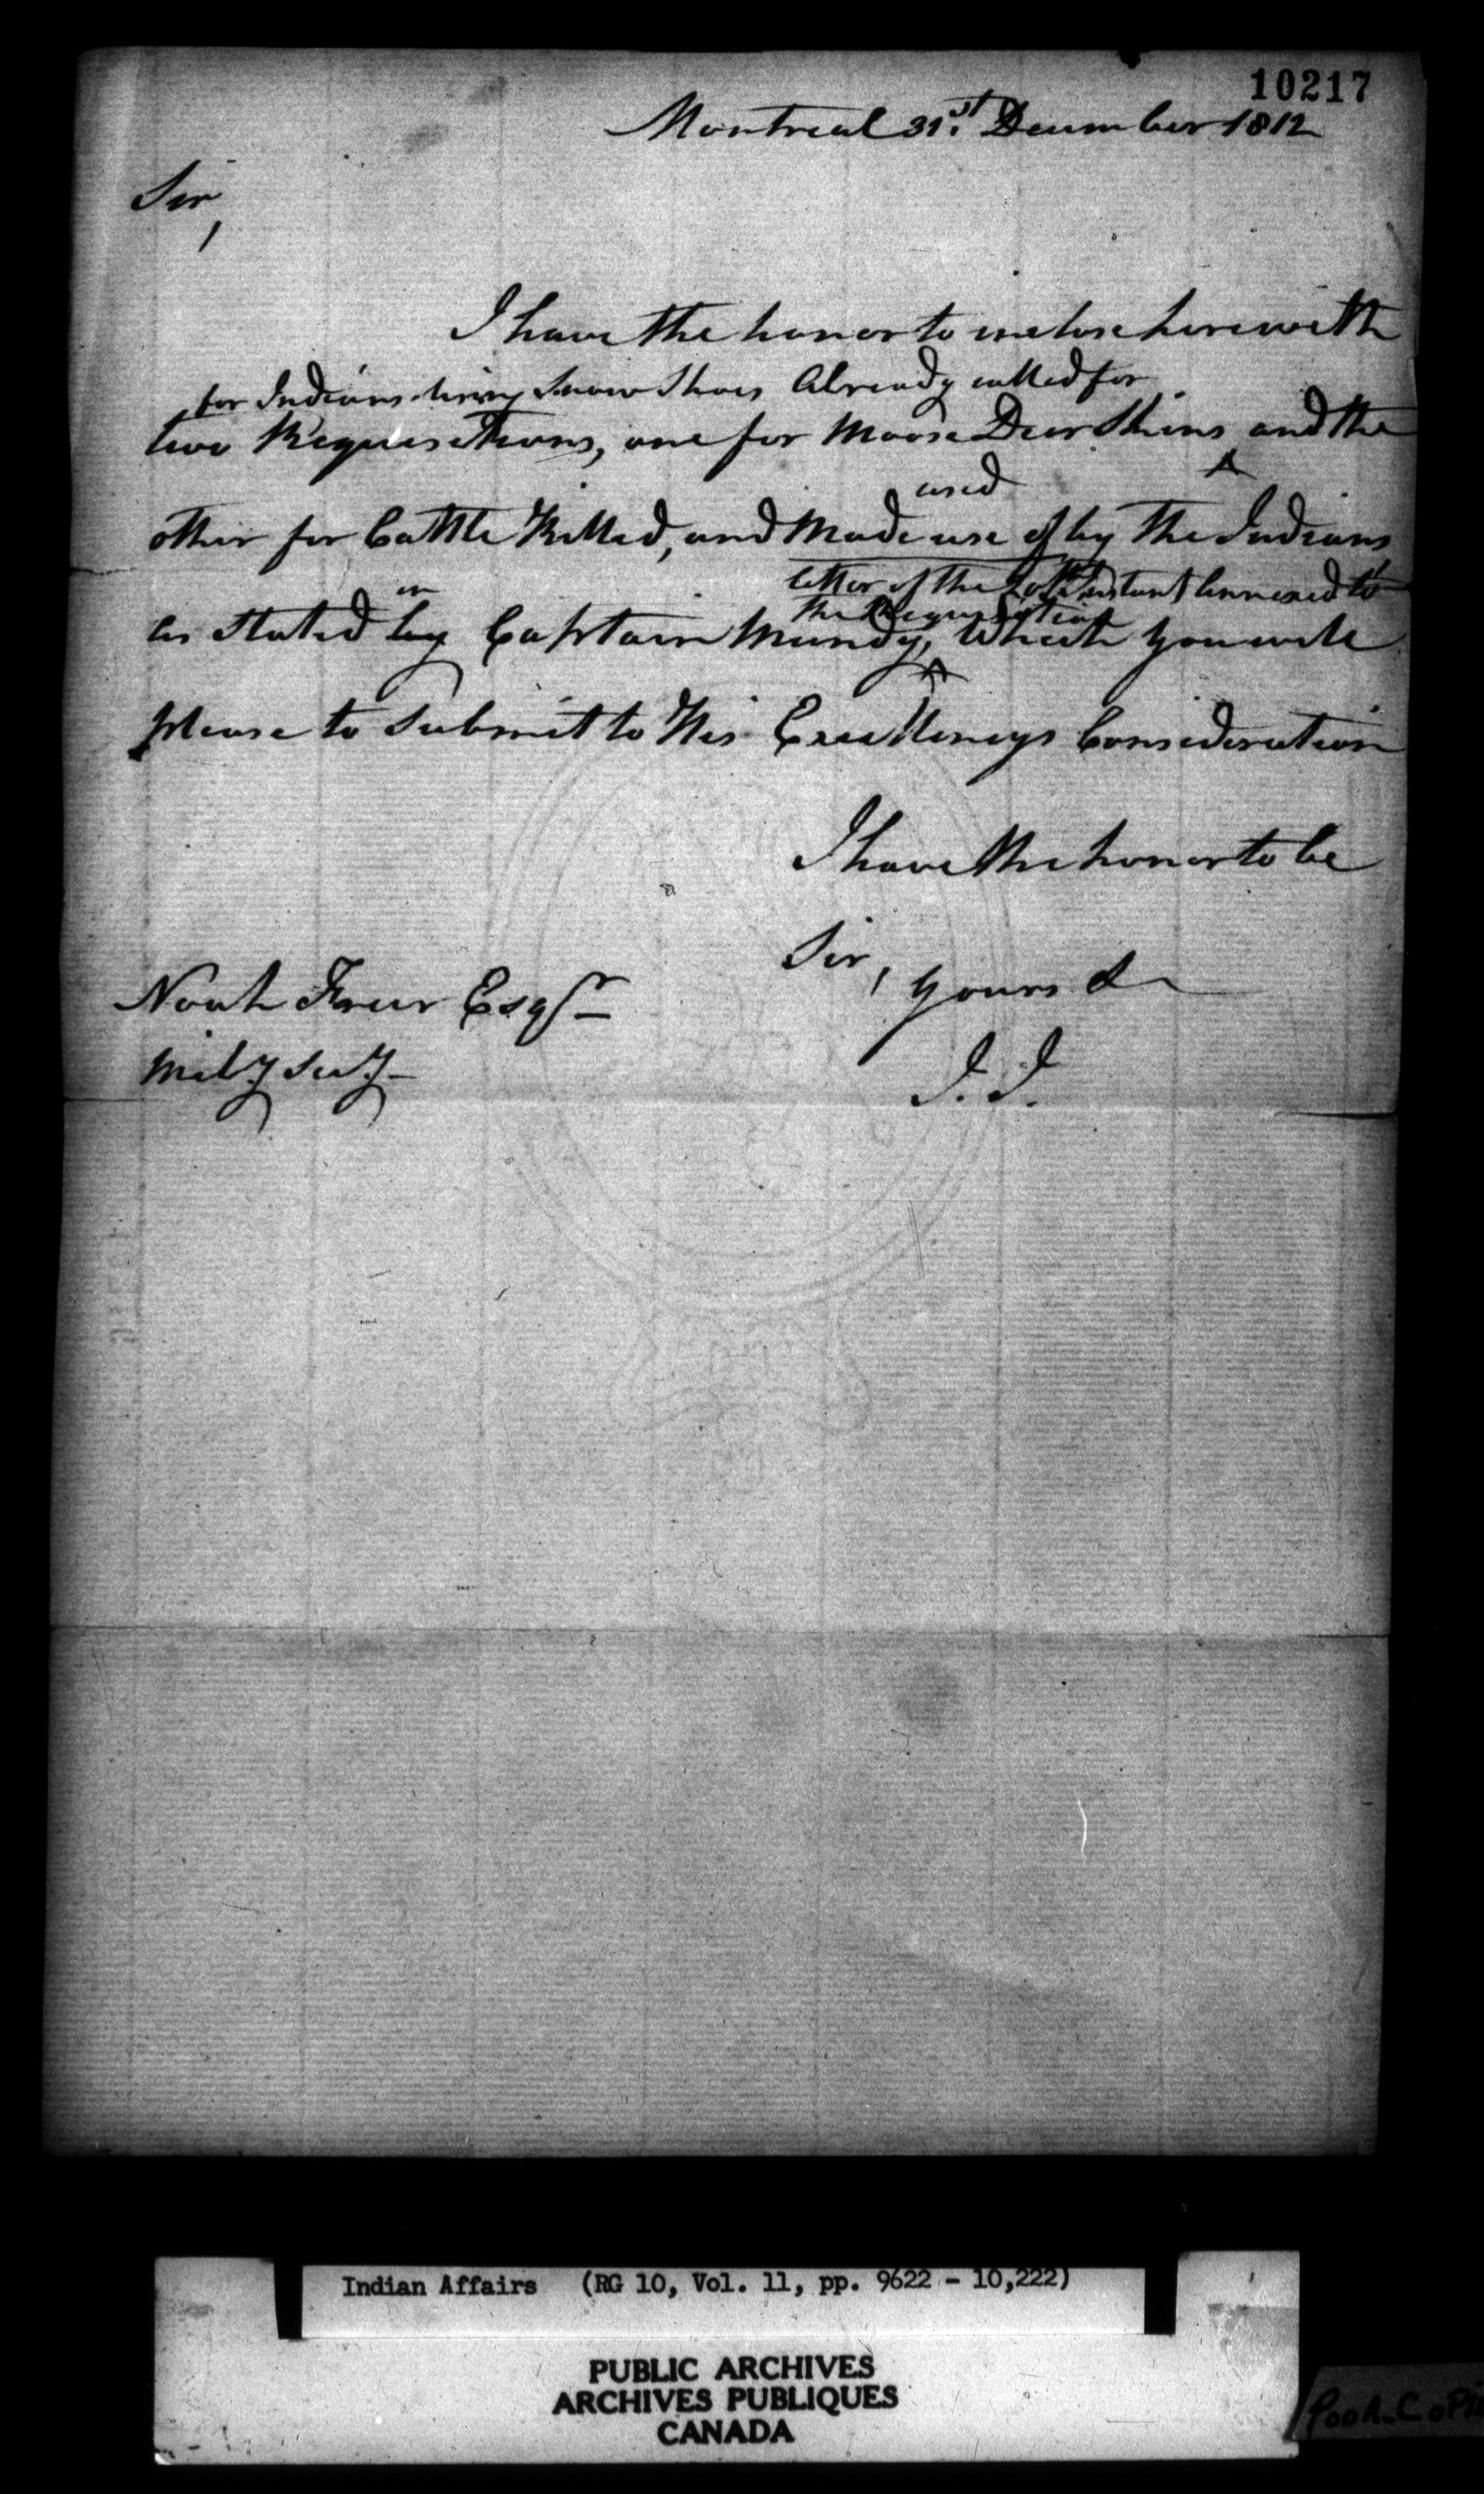 10217
Montreal 31st December 1812
Sir,
I have the honor to inclose herewith
for Indians Snow Shoes Already called for
two Requisitions, one for Moose Deer Skins ^ and the
used
other for Cattle Killed, and Made use of by the Indians,
letter of the Instant Annexed to
in the Requisition
as Stated by Captain Mundy, ^ Which you will
please to Submit to His Excellencys Consideration
I have the honor to be
Sir,
yours &
Noah Freer Esqr
Mily Secy
J. J.
Indian Affairs (RG 10, Vol. 11, pp. 9622 - 10,222)
PUBLIC ARCHIVES
ARCHIVES PUBLIQUES
CANADA